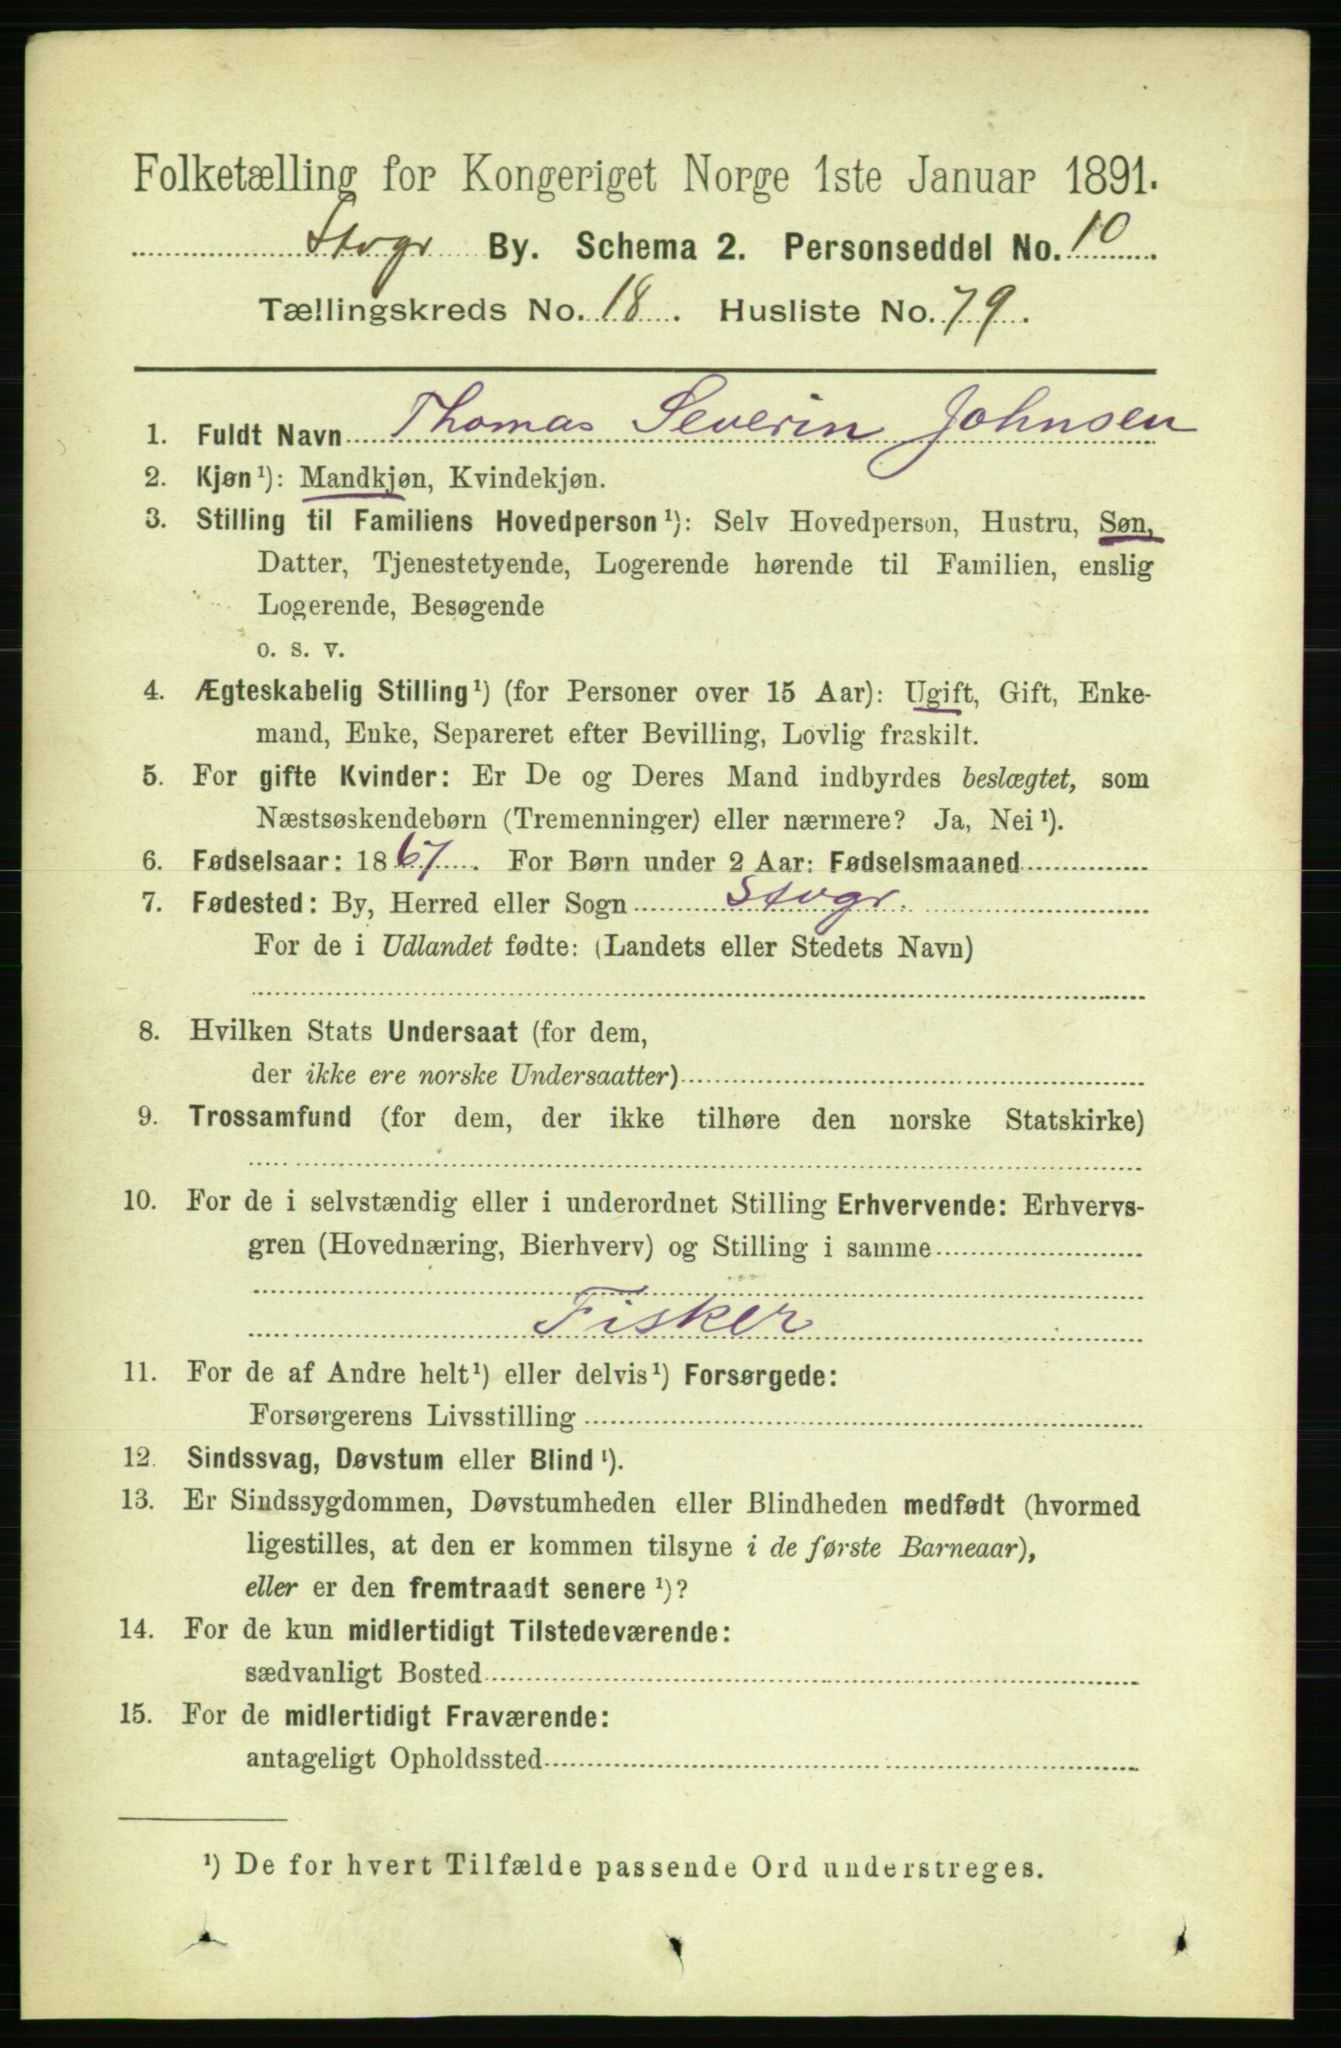 Folketælling for Kongeriget Norge 1ste Januar 1891.
Stvgr By. Schema 2. Personseddel No. 10.
Tællingskreds No. 18. Husliste No. 79.
1. Fuldt Navn Thomas Severin Johnsen
2. Kjøn¹): Mandkjøn, Kvindekjøn.
3. Stilling til Familiens Hovedperson¹): Selv Hovedperson, Hustru, Søn,
Datter, Tjenestetyende, Logerende hørende til Familien, enslig
Logerende, Besøgende
o. s. v.
4. Ægteskabelig Stilling¹) (for Personer over 15 Aar): Ugift, Gift, Enke-
mand, Enke, Separeret efter Bevilling, Lovlig fraskilt.
5. For gifte Kvinder: Er De og Deres Mand indbyrdes beslægtet, som
Næstsøskendebørn (Tremenninger) eller nærmere? Ja, Nei¹).
6. Fødselsaar: 1867. For Børn under 2 Aar: Fødselsmaaned
7. Fødested: By, Herred eller Sogn Stvgr.
For de i Udlandet fødte: (Landets eller Stedets Navn)
8. Hvilken Stats Undersaat (for dem,
der ikke ere norske Undersaatter)
9. Trossamfund (for dem, der ikke tilhøre den norske Statskirke)
10. For de i selvstændig eller i underordnet Stilling Erhvervende: Erhvervs-
gren (Hovednæring, Bierhverv) og Stilling i samme
Fisker
11. For de af Andre helt¹) eller delvis¹) Forsørgede:
Forsørgerens Livsstilling
12. Sindssvag, Døvstum eller Blind¹).
13. Er Sindssygdommen, Døvstumheden eller Blindheden medfødt (hvormed
ligestilles, at den er kommen tilsyne i de første Barneaar),
eller er den fremtraadt senere¹)?
14. For de kun midlertidigt Tilstedeværende:
sædvanligt Bosted
15. For de midlertidigt Fraværende:
antageligt Opholdssted
¹) De for hvert Tilfælde passende Ord understreges.